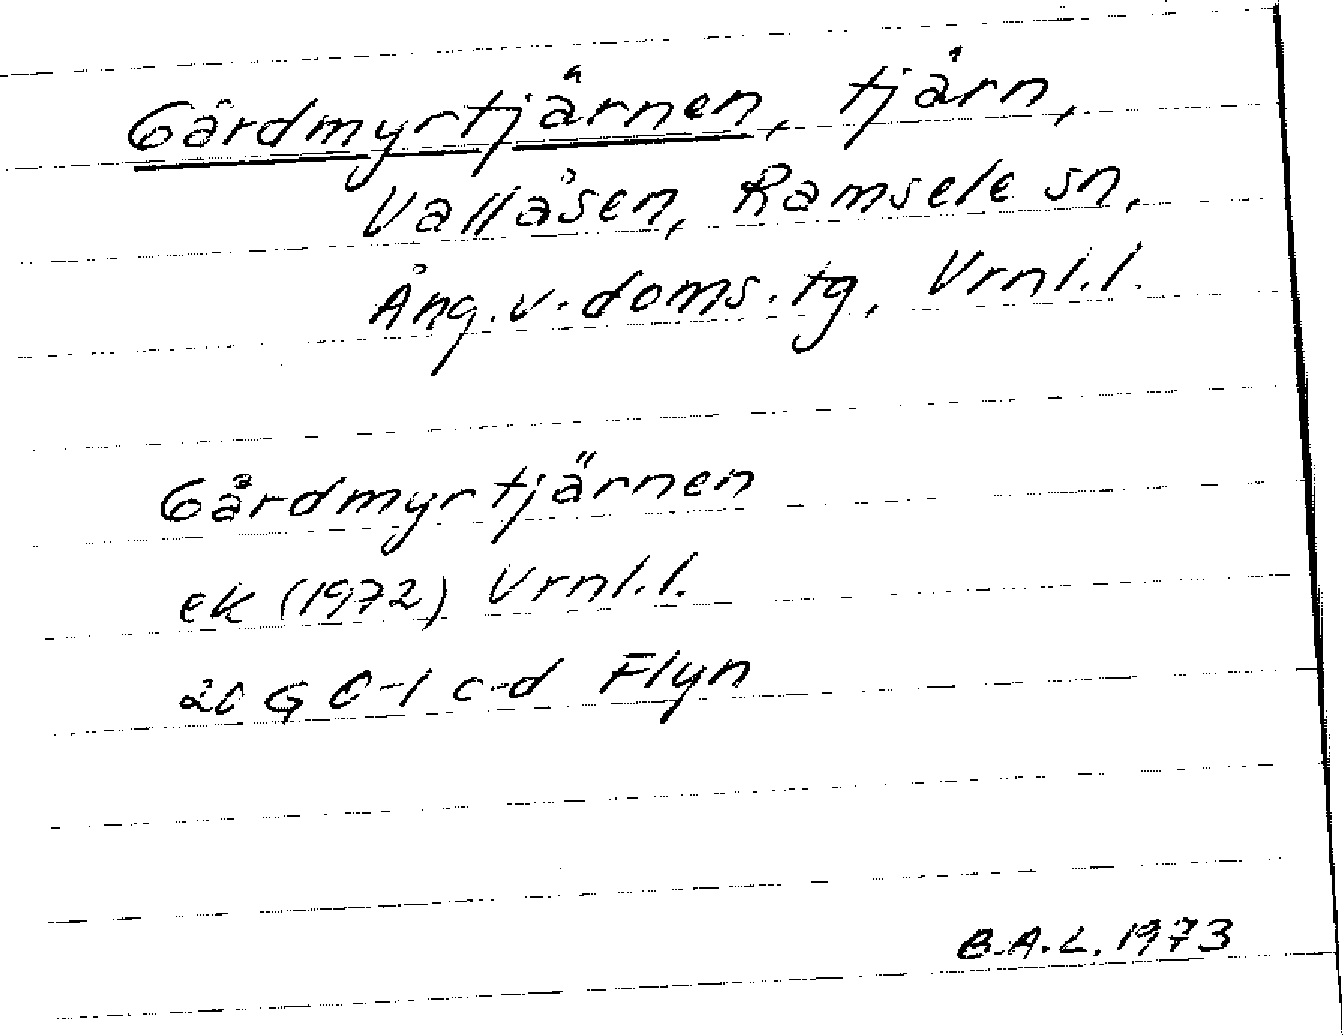 Gårdmyrtjärnen, tjärn,
Vallåsen, Ramsele sn,
Ång. v. doms. tg, Vrnl. l.
Gårdmyrtjärnen
ek (1972) Vrnl. l.
20 G 0-1 c-d Flyn
B.A.L. 1973